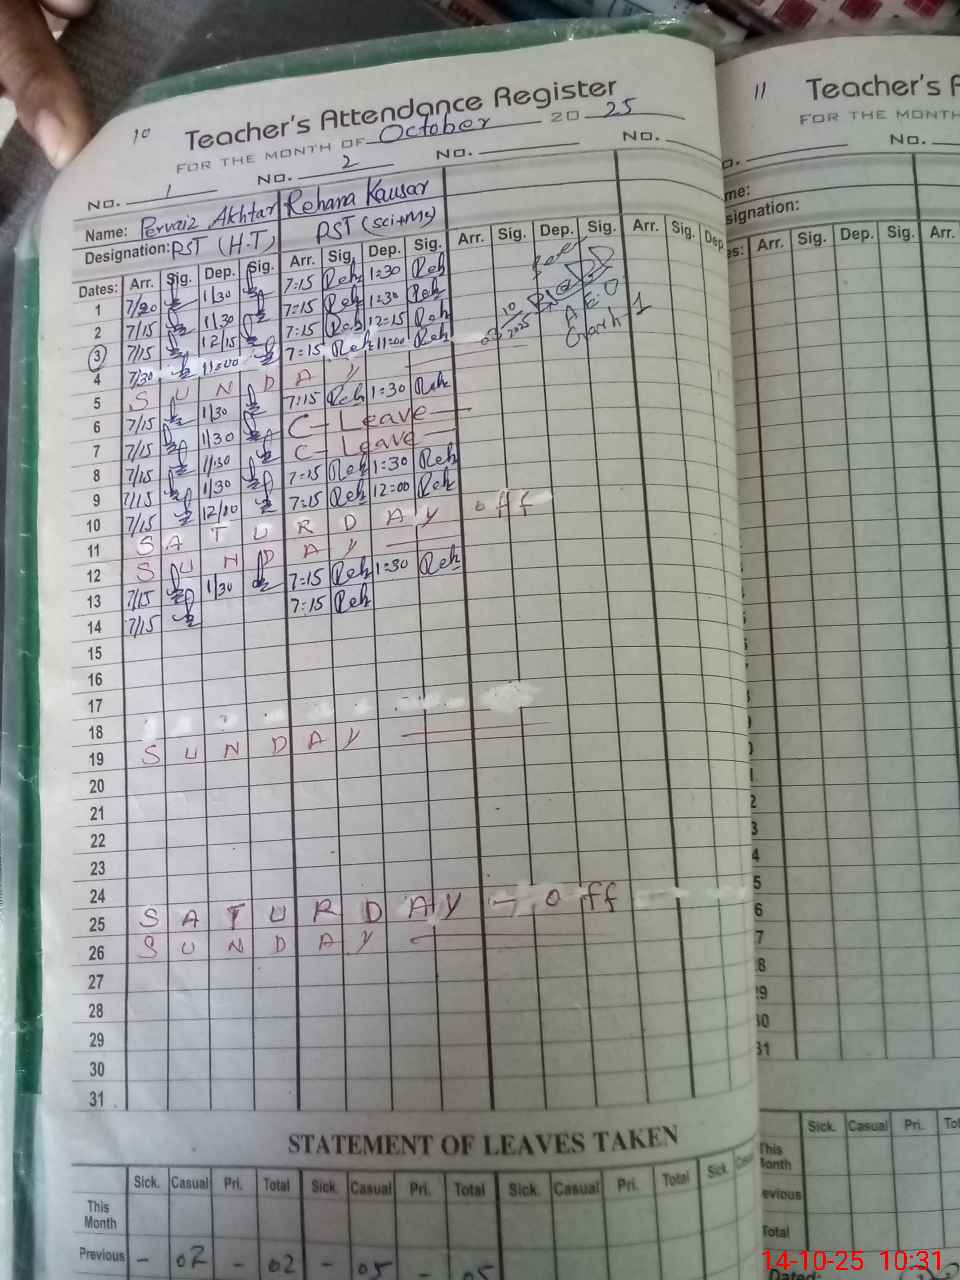 10
Teacher's Attendance Register
FOR THE MONTH OF October 20 25
No. 1 No. 2 No. No.
Name: Pervaiz Akhtar Rehana Kausar
Designation: PST (H.T) PST (Sci+Ms)
Dates: Arr. Sig. Dep. Sig. Arr. Sig. Dep. Sig. Arr. Sig. Dep. Sig. Arr. Sig. Dep.
1 7/20 1/30 7:15 Reh 1:30 Reh
2 7/15 1/30 7:15 Reh 1:30 Reh
3 7/15 12/15 7:15 Reh 12:15 Reh
4 7/30 11:00 7:15 Reh 11:00 Reh
5 SUNDAY
6 7/15 1/30 7:15 Reh 1:30 Reh
7 7/15 1/30 C- Leave
8 7/15 1/30 C- Leave
9 7/15 1/30 7:15 Reh 1:30 Reh
10 7/15 12/00 7:15 Reh 12:00 Reh
11 SATURDAY off
12 SUNDAY
13 7/15 1/30 7:15 Reh 1:30 Reh
14 7/15 7:15 Reh
15
16
17
18
19 SUNDAY
20
21
22
23
24
25 SATURDAY - off
26 SUNDAY
27
28
29
30
31
10
2025
A.E.O
STATEMENT OF LEAVES TAKEN
Sick. Casual Pri. Total Sick. Casual Pri. Total Sick. Casual Pri. Total Sick. Casual
This Month
Previous - 02 - 02 - 05 - 05
11
Teacher's
FOR THE MONTH
No.
Arr. Sig. Dep. Sig. Arr.
Sick. Casual Pri.
14-10-25 10:31